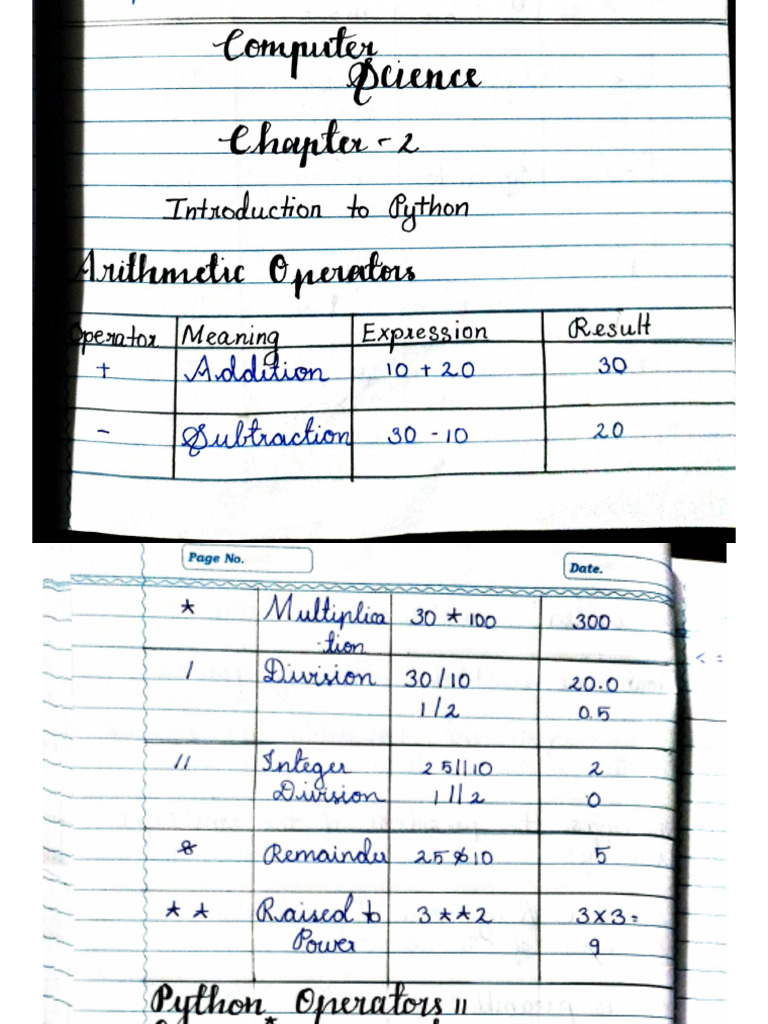 Computer
Science
Chapter - 2
Introduction to Python
Arithmetic Operators
Operator Meaning Expression Result
+ Addition 10 + 20 30
- Subtraction 30 - 10 20
Page No. Date.
* Multiplica 30 * 100 300
-tion
/ Division 30/10 20.0
1/2 0.5
// Integer 25//10 2
Division 1//2 0
% Remainder 25%10 5
** Raised to 3**2 3×3=
Power 9
Python Operators